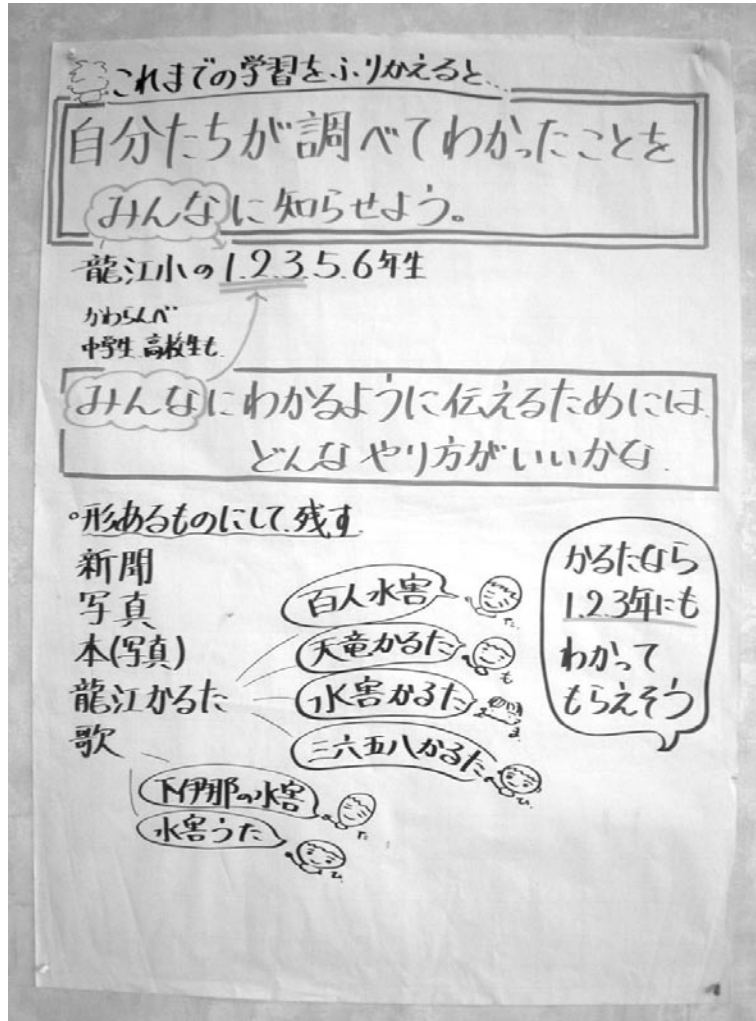 これまでの学習をふりかえると…
自分たちが調べてわかったことを
みんなに知らせよう。
龍江小の1.2.3.5.6年生
かわらんべ
中学生 高校生も
みんなにわかるように伝えるためには、
どんなやり方がいいかな
・形あるものにして残す
新聞
写真
本(写真)
龍江かるた
歌
百人水害
た.
天竜かるた
も
水害かるた
ま.
三六五八かるた
ひ.
下伊那の水害
た.
水害うた
ひ.
かるたなら
1.2.3年にも
わかって
もらえそう